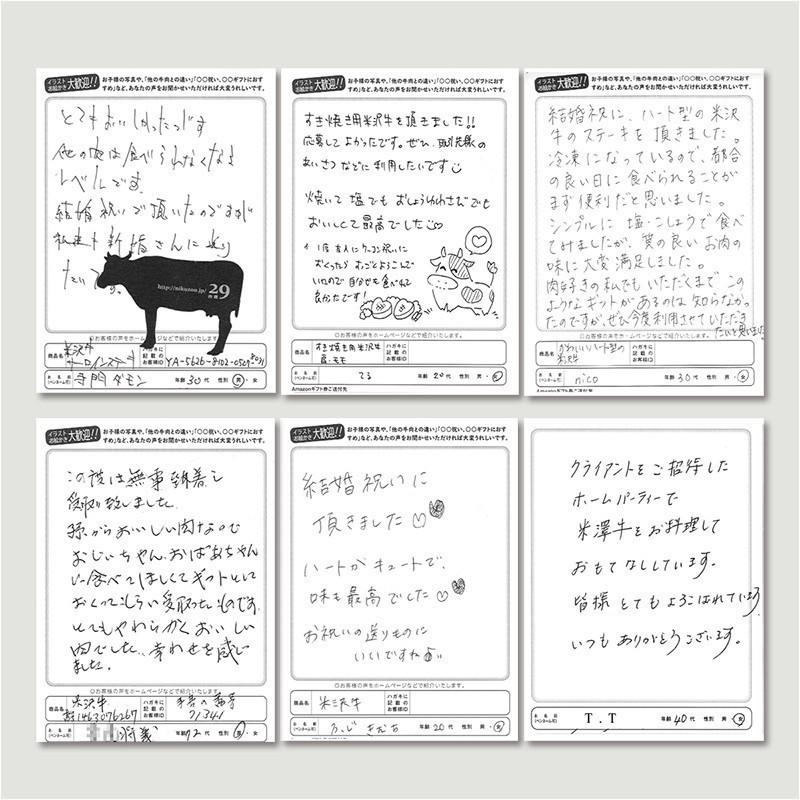 イラスト
お絵かき
大歓迎!!
お子様の写真や、「他の牛肉との違い」「〇〇祝い、〇〇ギフトにおす
すめ」など、あなたの声をお聞かせいただければ大変うれしいです。
とてもおいしかったっです
他の肉は食べられなくなる
レベルです。
結婚祝いで頂いたのですが
新婚さんに送り
たいです。
http://nikuzou.jp/
29
〇お客様の声をホームページなどで紹介いたします。
商品名
米沢牛
サーロインステーキ
ハガキに
記載の
お客様ID
YA-5626-8102-0529-8031
お名前
(ペンネーム可)
寺門ダモン
年齢 30代 性別 男・女
イラスト
お絵かき
大歓迎!!
お子様の写真や、「他の牛肉との違い」「〇〇祝い、〇〇ギフトにおす
すめ」など、あなたの声をお聞かせいただければ大変うれしいです。
すき焼き用米沢牛を頂きました!!
応募してよかったです。ぜひ、取引先様の
あいさつなどに利用したいです
焼いて塩でもおしょうゆわさびでも
おいしくて最高でした
おくったらすごくよろこんで
いたので自分も食べれて
良かったです!
〇お客様の声をホームページなどで紹介いたします。
商品名
すき焼き用米沢牛
肩・モモ
ハガキに
記載の
お客様ID
お名前
(ペンネーム可)
てる
年齢 20代 性別 男・女
Amazonギフト券ご送付先
イラスト
お絵かき
大歓迎!!
お子様の写真や、「他の牛肉との違い」「〇〇祝い、〇〇ギフトにおす
すめ」など、あなたの声をお聞かせいただければ大変うれしいです。
結婚祝に、ハート型の米沢
牛のステーキを頂きました。
冷凍になっているので、都合
の良い日に食べられることが
まず便利だと思いました。
シンプルに塩・こしょうで食べ
てみましたが、質の良いお肉の
味に大変満足しました。
肉好きの私でもいただくまでこの
ようなギフトがあるのは知らなかっ
たのですが、ぜひ今度利用させていただき
たいと思いました
〇お客様の声をホームページなどで紹介いたします。
商品名
かわいいハート型の
米沢牛
ハガキに
記載の
お客様ID
お名前
(ペンネーム可)
nico
年齢 30代 性別 男・女
イラスト
お絵かき
大歓迎!!
お子様の写真や、「他の牛肉との違い」「〇〇祝い、〇〇ギフトにおす
すめ」など、あなたの声をお聞かせいただければ大変うれしいです。
この度は無事到着し
受取り致しました。
孫からおいしい肉なので
おじいちゃん、おばあちゃん
に食べてほしくてギフトとして
おくってもらい受取ったものです。
とてもやわらかくおいしい
肉でした。幸わせを感じ
ました。
〇お客様の声をホームページなどで紹介いたします。
商品名
米沢牛
ハガキに
記載の
お客様ID
71341
お名前
(ペンネーム可)
年齢 72代 性別 男・女
イラスト
お絵かき
大歓迎!!
お子様の写真や、「他の牛肉との違い」「〇〇祝い、〇〇ギフトにおす
すめ」など、あなたの声をお聞かせいただければ大変うれしいです。
結婚祝いに
頂きました♡
ハートがキュートで、
味も最高でした♡
お祝いの送りものに
いいですね
〇お客様の声をホームページなどで紹介いたします。
商品名
米三尺牛
ハガキに
記載の
お客様ID
お名前
(ペンネーム可)
年齢 20代 性別 男・女
クライアントをご招待した
ホームパーティーで
米澤牛をお料理して
おもてなししています。
皆様とてもよろこばれています
いつもありがとうございます。
お名前
(ペンネーム可)
T.T
年齢 40代 性別 男・女